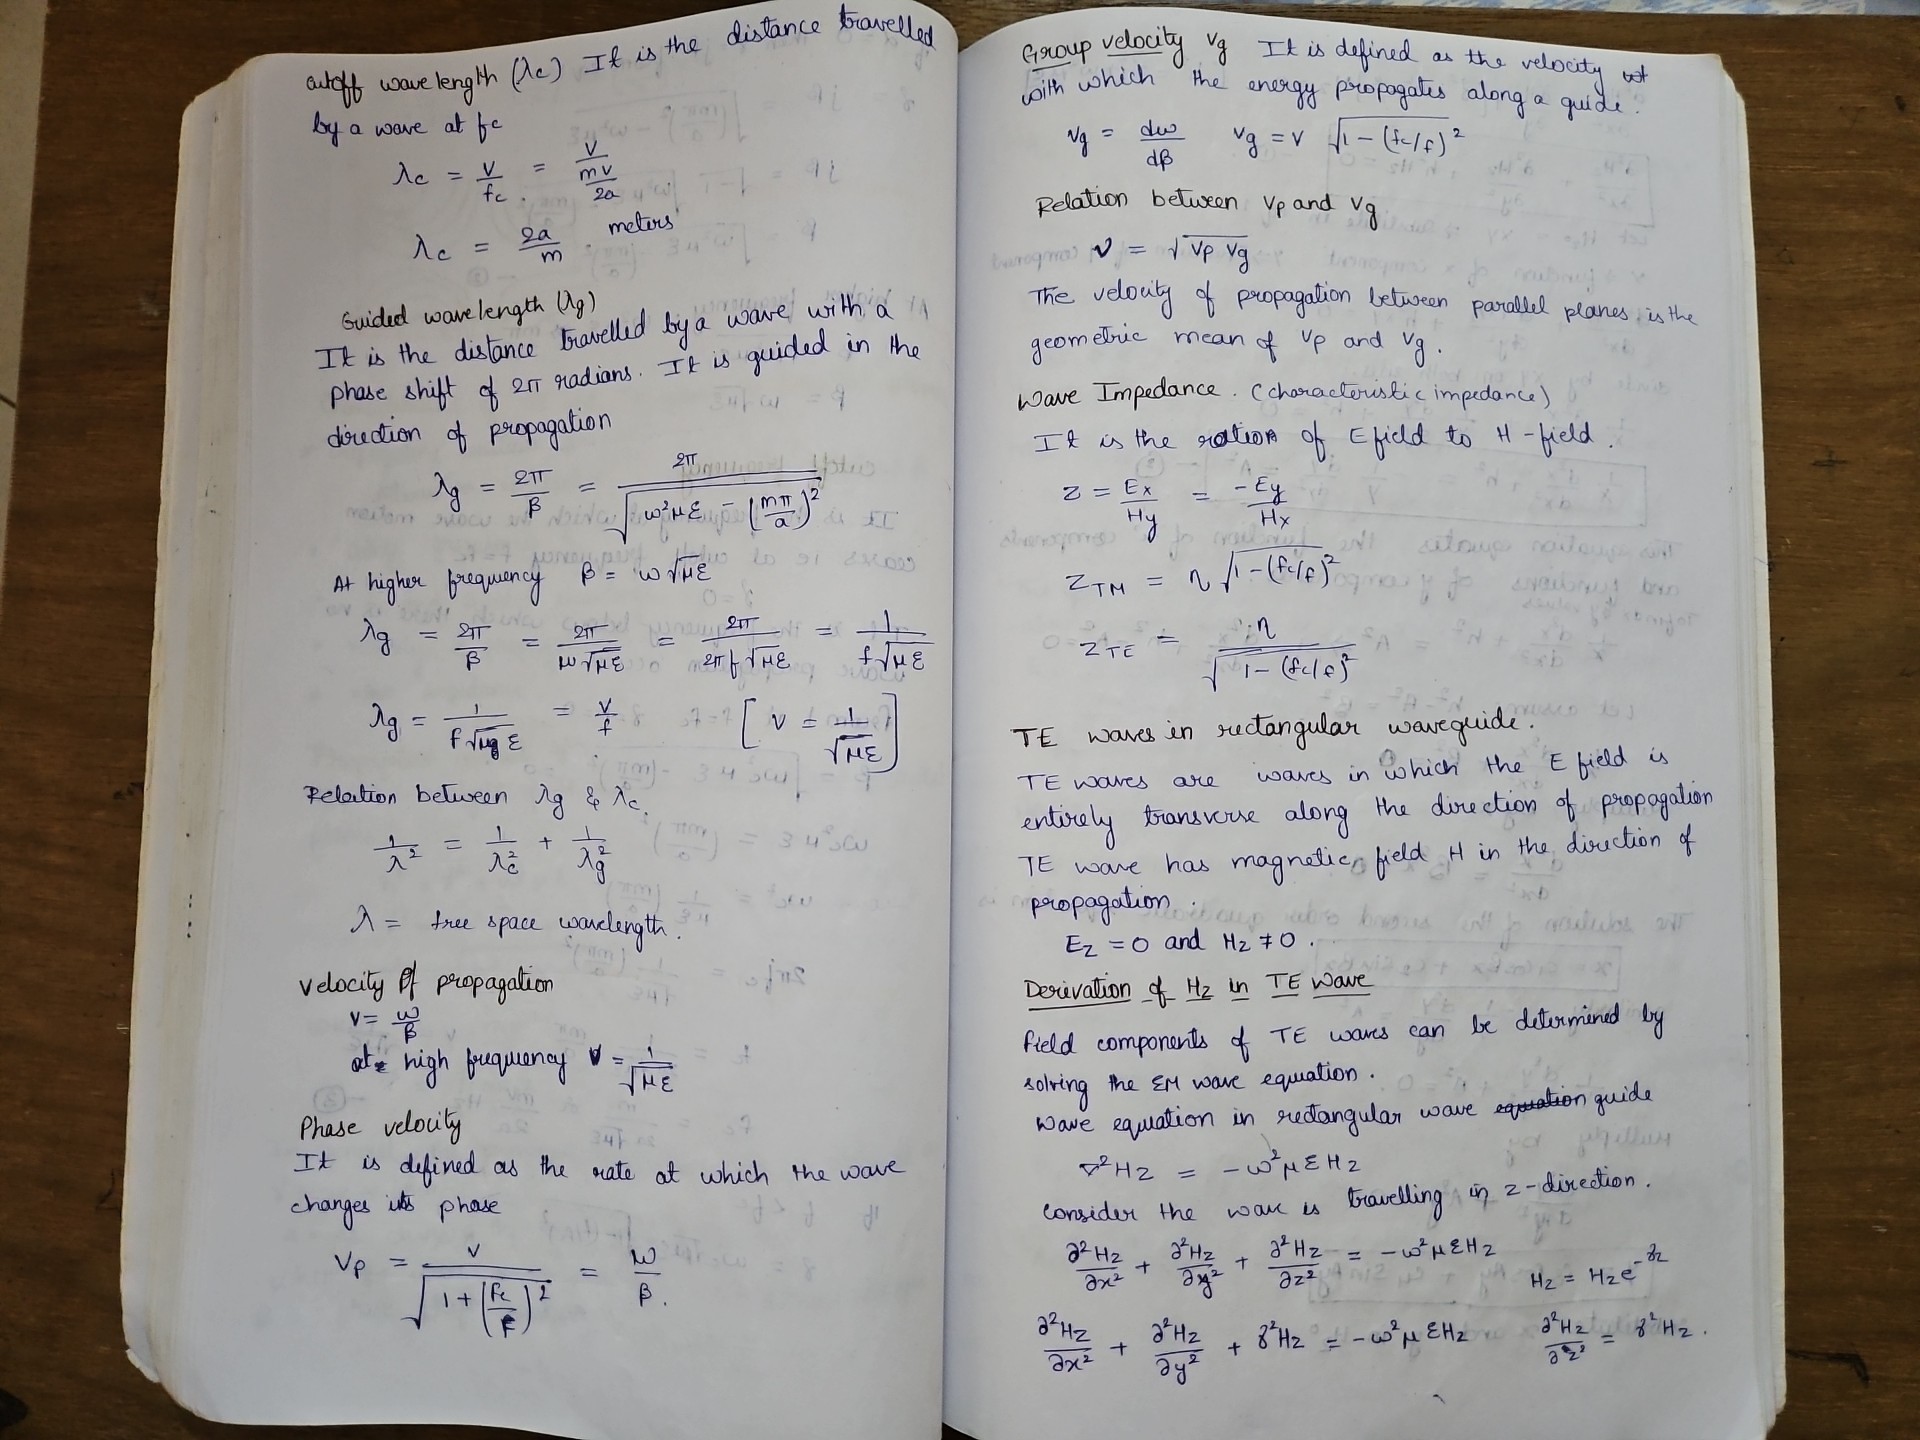 cutoff wavelength (λc) It is the distance travelled
by a wave at fc
λc = v/fc. = v/(mv/2a)
λc = 2a/m meters
Guided wavelength (λg)
It is the distance travelled by a wave with a
phase shift of 2π radians. It is guided in the
direction of propagation
λg = 2π/β = 2π/√(ω²με - (mπ/a)²)
At higher frequency β = ω√με
λg = 2π/β = 2π/ω√με = 2π/2πf√με = 1/f√με
λg = 1/f√με = v/f [v = 1/√με]
Relation between λg & λc.
1/λ² = 1/λc² + 1/λg²
λ = free space wavelength.
Velocity of propagation
v = ω/β
at high frequency v = 1/√με
Phase velocity
It is defined as the rate at which the wave
changes its phase
Vp = v/√(1+(fc/f)²) = ω/β.
Group velocity vg It is defined as the velocity
with which the energy propagates along a guide.
vg = dω/dβ vg = v √(1-(fc/f)²)
Relation between vp and vg
v = √(vp vg)
The velocity of propagation between parallel planes is the
geometric mean of vp and vg.
Wave Impedance. (characteristic impedance)
It is the ratio of E field to H-field.
Z = Ex/Hy = -Ey/Hx
ZTM = η √(1-(fc/f)²)
ZTE = η/√(1-(fc/f)²)
TE waves in rectangular waveguide.
TE waves are waves in which the E field is
entirely transverse along the direction of propagation
TE wave has magnetic field H in the direction of
propagation.
Ez = 0 and Hz ≠ 0.
Derivation of Hz in TE wave
field components of TE waves can be determined by
solving the EM wave equation.
wave equation in rectangular wave equation guide
∇²Hz = -ω²μεHz
consider the wave is travelling in z-direction.
∂²Hz/∂x² + ∂²Hz/∂y² + ∂²Hz/∂z² = -ω²μεHz Hz = Hz e^-γz
∂²Hz/∂x² + ∂²Hz/∂y² + γ²Hz = -ω²μεHz ∂²Hz/∂z² = γ²Hz.